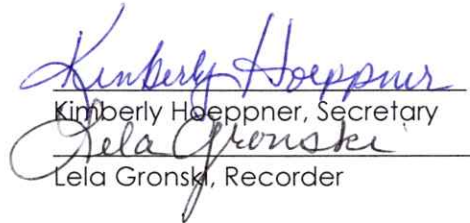 Kimberly Hoeppner
Kimberly Hoeppner, Secretary
Lela Gronski
Lela Gronski, Recorder